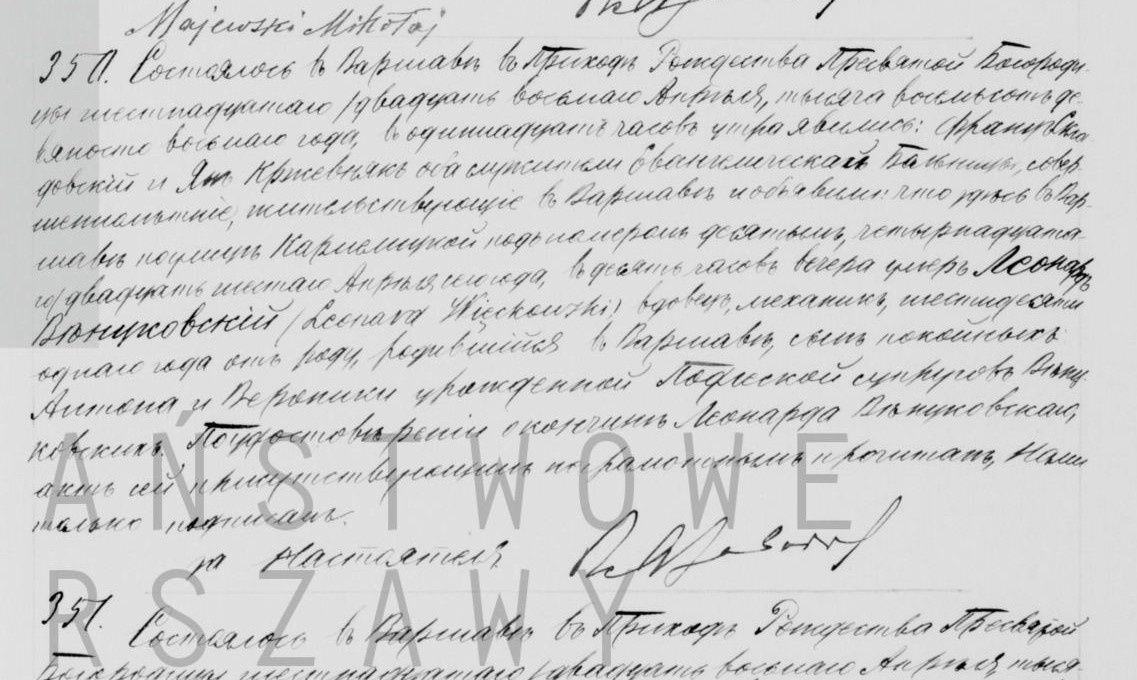 Majewski Mikołaj
350. Состоялось въ Варшавѣ въ Приходѣ Рождества Пресвятой Богороди-
цы шестнадцатаго /двадцать восьмаго Апрѣля, тысяча восемьсотъ де-
вяносто восьмаго года, въ одиннадцать часовъ утра явились: Францъ
довскій и Янъ Кржевнякъ оба служители Евангелической Больницы, совер-
шеннолѣтніе, жительствующіе въ Варшавѣ и объявили: что здѣсь въ Вар-
шавѣ по улицѣ Кармелицкой подъ номеромъ десятымъ, четырнадцата-
го/двадцать шестаго Апрѣля сего года, въ десять часовъ вечера умеръ Леонардъ
Вѣнцковскій /Leonard Więckowski/ вдовецъ, механикъ, шестидесяти
одного года отъ роду, родившійся въ Варшавѣ, сынъ покойныхъ
Антона и Вероники урожденной супруговъ Вѣнц-
ковскихъ. По удостовѣреніи о кончинѣ Леонарда Вѣнцковскаго,
актъ сей присутствующимъ неграмотнымъ прочитанъ, Нами
только подписанъ.
за Настоятеля
AŃSTWOWE
RSZAWY
351. Состоялось въ Варшавѣ въ Приходѣ Рождества Пресвятой
Богородицы шестнадцатаго /двадцать восьмаго Апрѣля, тыся-